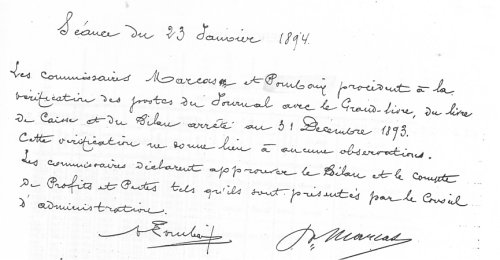 Séance du 23 Janvier 1894.
Les commissaires Marcas et Pombain procèdent à la
vérification des postes du Journal avec le Grand-livre, du livre
de Caisse et du Bilan arrêté au 31 Décembre 1893.
Cette vérification ne donne lieu à aucune observation.
Les commissaires déclarent approuver le Bilan et le compte
de Profits et Pertes tels qu'ils sont présentés par le Conseil
d'administration.
Marcas